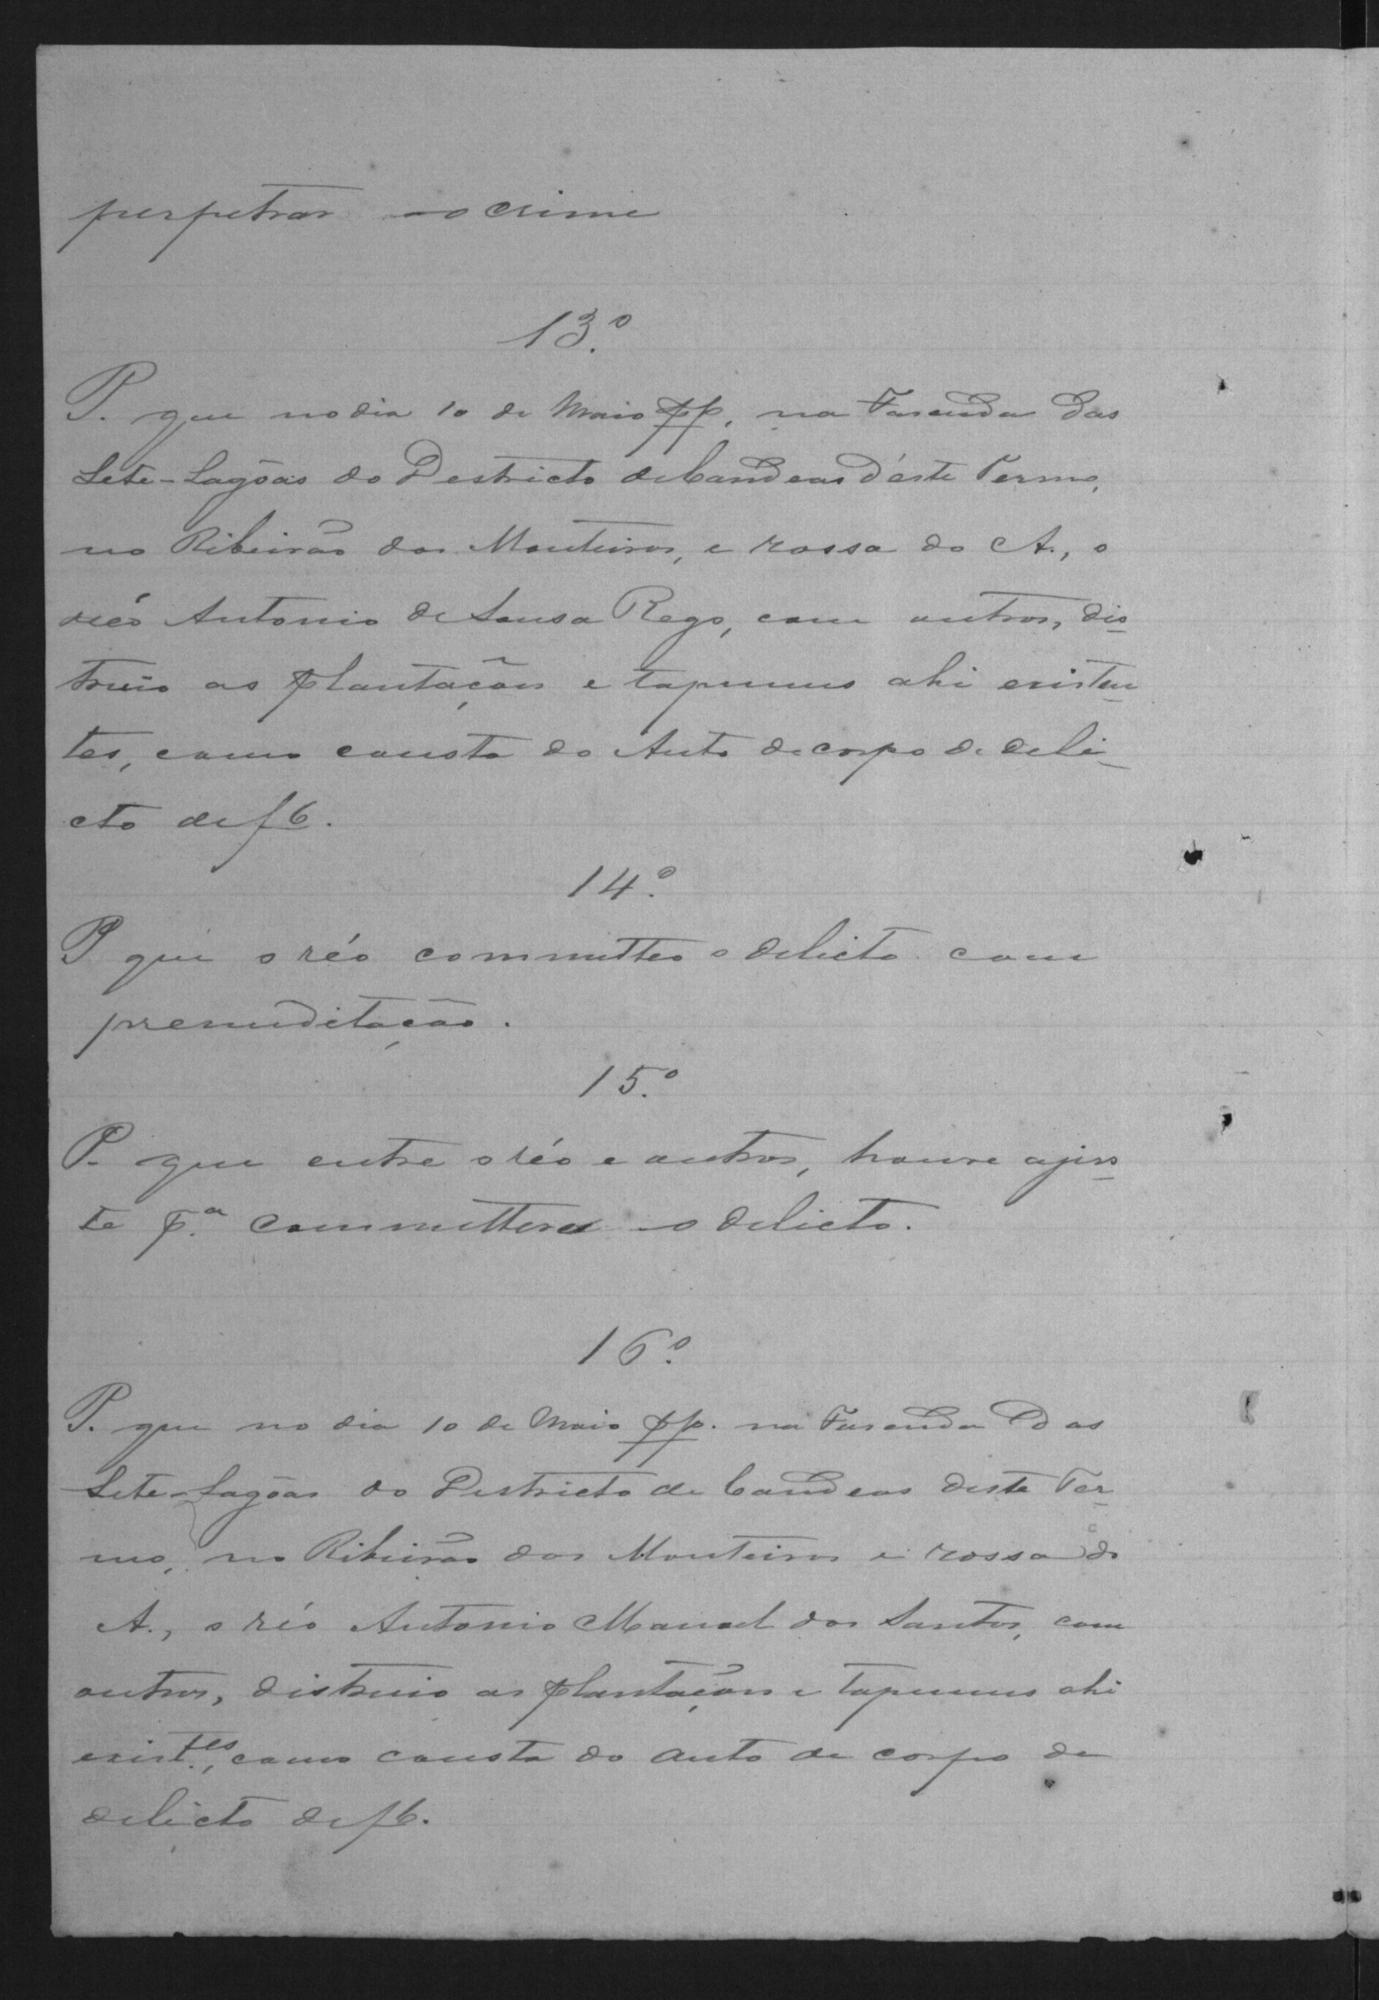 perpetrar o crime
13.º
P. que no dia 10 de Maio pp, na Fasenda das
Sete-Lagôas do Destricto de Candeas d'este Termo,
no Ribeirão dos Monteiros, e rossa do A., o
reó Antonio de Sousa Rego, com outros, dis-
truio as plantaçãos e tapumes ahi existen-
tes, como consta do Auto de corpo de deli-
cto de f 6.
14.º
P que o réo committeo o delicto com
premiditação.
15.º
P. que entre o réo e outros, houve ajus-
te p.ª committerem o delicto.
16.º
P. que no dia 10 de Maio pp. na Fasenda das
Sete-Lagôas do Destricto de Candeas deste Ter-
mo, no Ribeirão dos Monteiros e rossa do
A., o réo Antonio Manoel dos Santos, com
outros, distruio as plantaçãos e tapumes ahi
exist.tes, como consta do auto de corpo de
delicto de f 6.